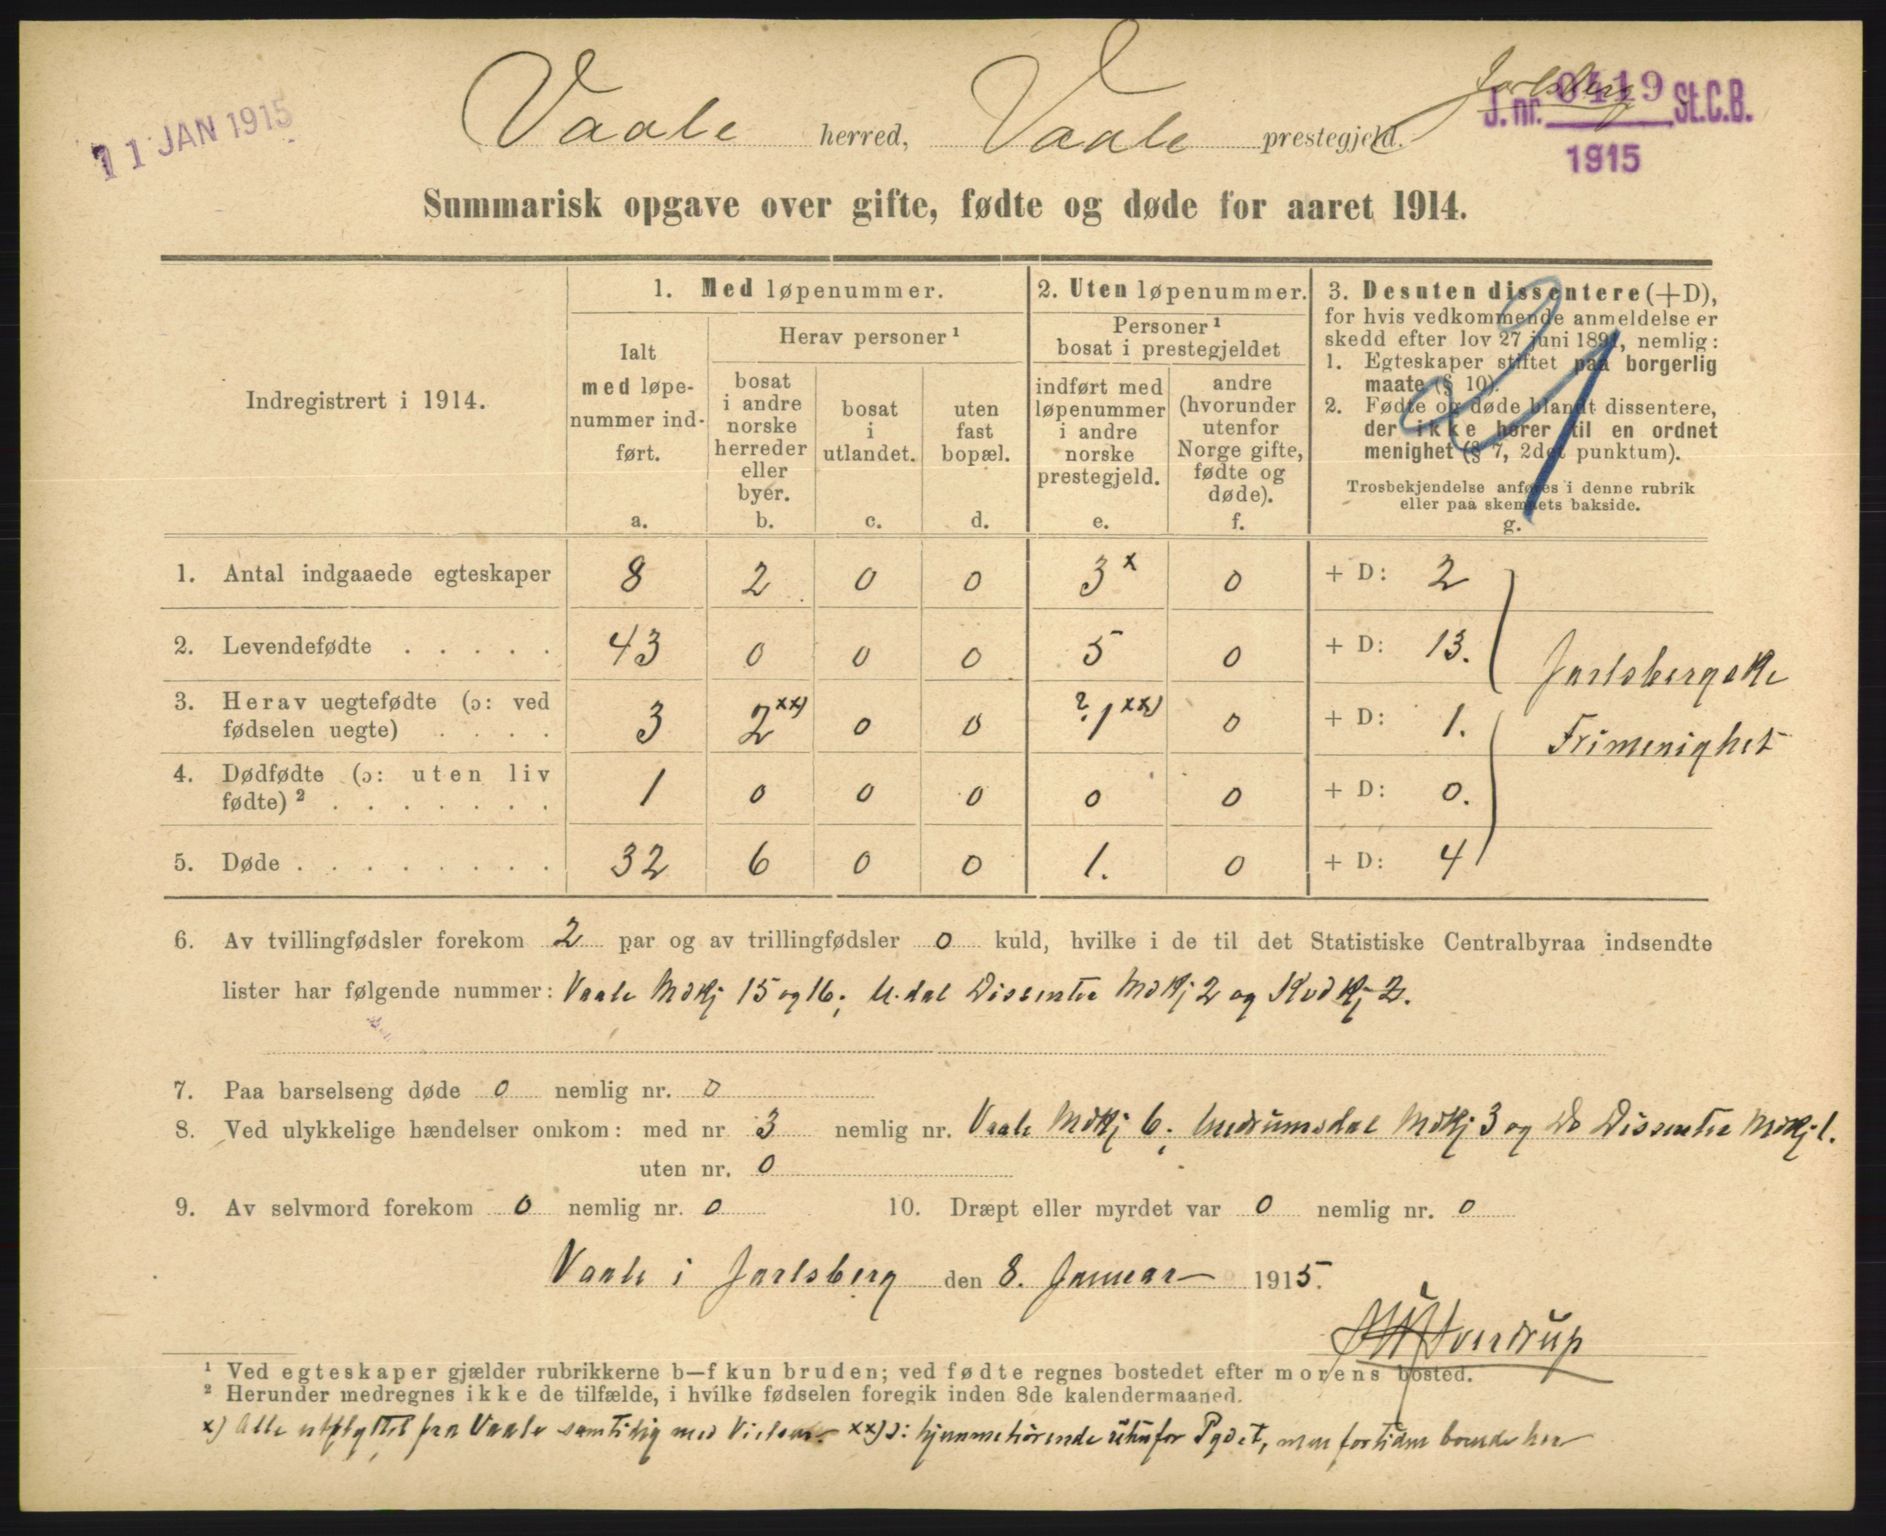 11 JAN 1915
Vaale herred, Vaale prestegjeld. Jarlsberg
J. nr. 0419 St.C.B.
1915
Summarisk opgave over gifte, fødte og døde for aaret 1914.
21
Indregistrert i 1914.
1. Med løpenummer.
Ialt
med løpe-
nummer ind-
ført.
a.
Herav personer ¹
bosat
i andre
norske
herreder
eller
byer.
b.
bosat
i
utlandet.
c.
uten
fast
bopæl.
d.
2. Uten løpenummer.
Personer ¹
bosat i prestegjeldet
indført med
løpenummer
i andre
norske
prestegjeld.
e.
andre
(hvorunder
utenfor
Norge gifte,
fødte og
døde).
f.
3. Desuten dissentere (+D),
for hvis vedkommende anmeldelse er
skedd efter lov 27 juni 1891, nemlig:
1. Egteskaper stiftet paa borgerlig
maate (§ 10).
2. Fødte og døde blandt dissentere,
der ikke hører til en ordnet
menighet (§ 7, 2det punktum).
Trosbekjendelse anføres i denne rubrik
eller paa skemaets bakside.
g.
1. Antal indgaaede egteskaper 8 2 0 0 3 x 0 + D: 2
2. Levendefødte . . . . . 43 0 0 0 5 0 + D: 13.
Jarlsbergske
3. Herav uegtefødte (ɔ: ved
fødselen uegte) . . . . 3 2 xx) 0 0 ? 1 xx) 0 + D: 1.
Frimenighet
4. Dødfødte (ɔ: uten liv
fødte) ² . . . . . . . 1 0 0 0 0 0 + D: 0.
5. Døde . . . . . . . . 32 6 0 0 1. 0 + D: 4
6. Av tvillingfødsler forekom 2 par og av trillingfødsler 0 kuld, hvilke i de til det Statistiske Centralbyraa indsendte
lister har følgende nummer: Vaale Mdkj 15 og 16; U.dal Dissenter Mdkj 2 og Kvdkj 2.
7. Paa barselseng døde 0 nemlig nr. 0
8. Ved ulykkelige hændelser omkom: med nr 3 nemlig nr. Vaale Mdkj 6; Undrumsdal Mdkj 3 og Do Dissenter Mdkj 1.
uten nr. 0
9. Av selvmord forekom 0 nemlig nr. 0 10. Dræpt eller myrdet var 0 nemlig nr. 0
Vaale i Jarlsberg den 8. Januar 1915.
Sverdrup
¹ Ved egteskaper gjælder rubrikkerne b—f kun bruden; ved fødte regnes bostedet efter morens bosted.
² Herunder medregnes ikke de tilfælde, i hvilke fødselen foregik inden 8de kalendermaaned.
x) Alle utflyttet fra Vaale samtidig med Vielsen. xx) ɔ: hjemmehørende utenfor Pgdet, men fortiden boende her